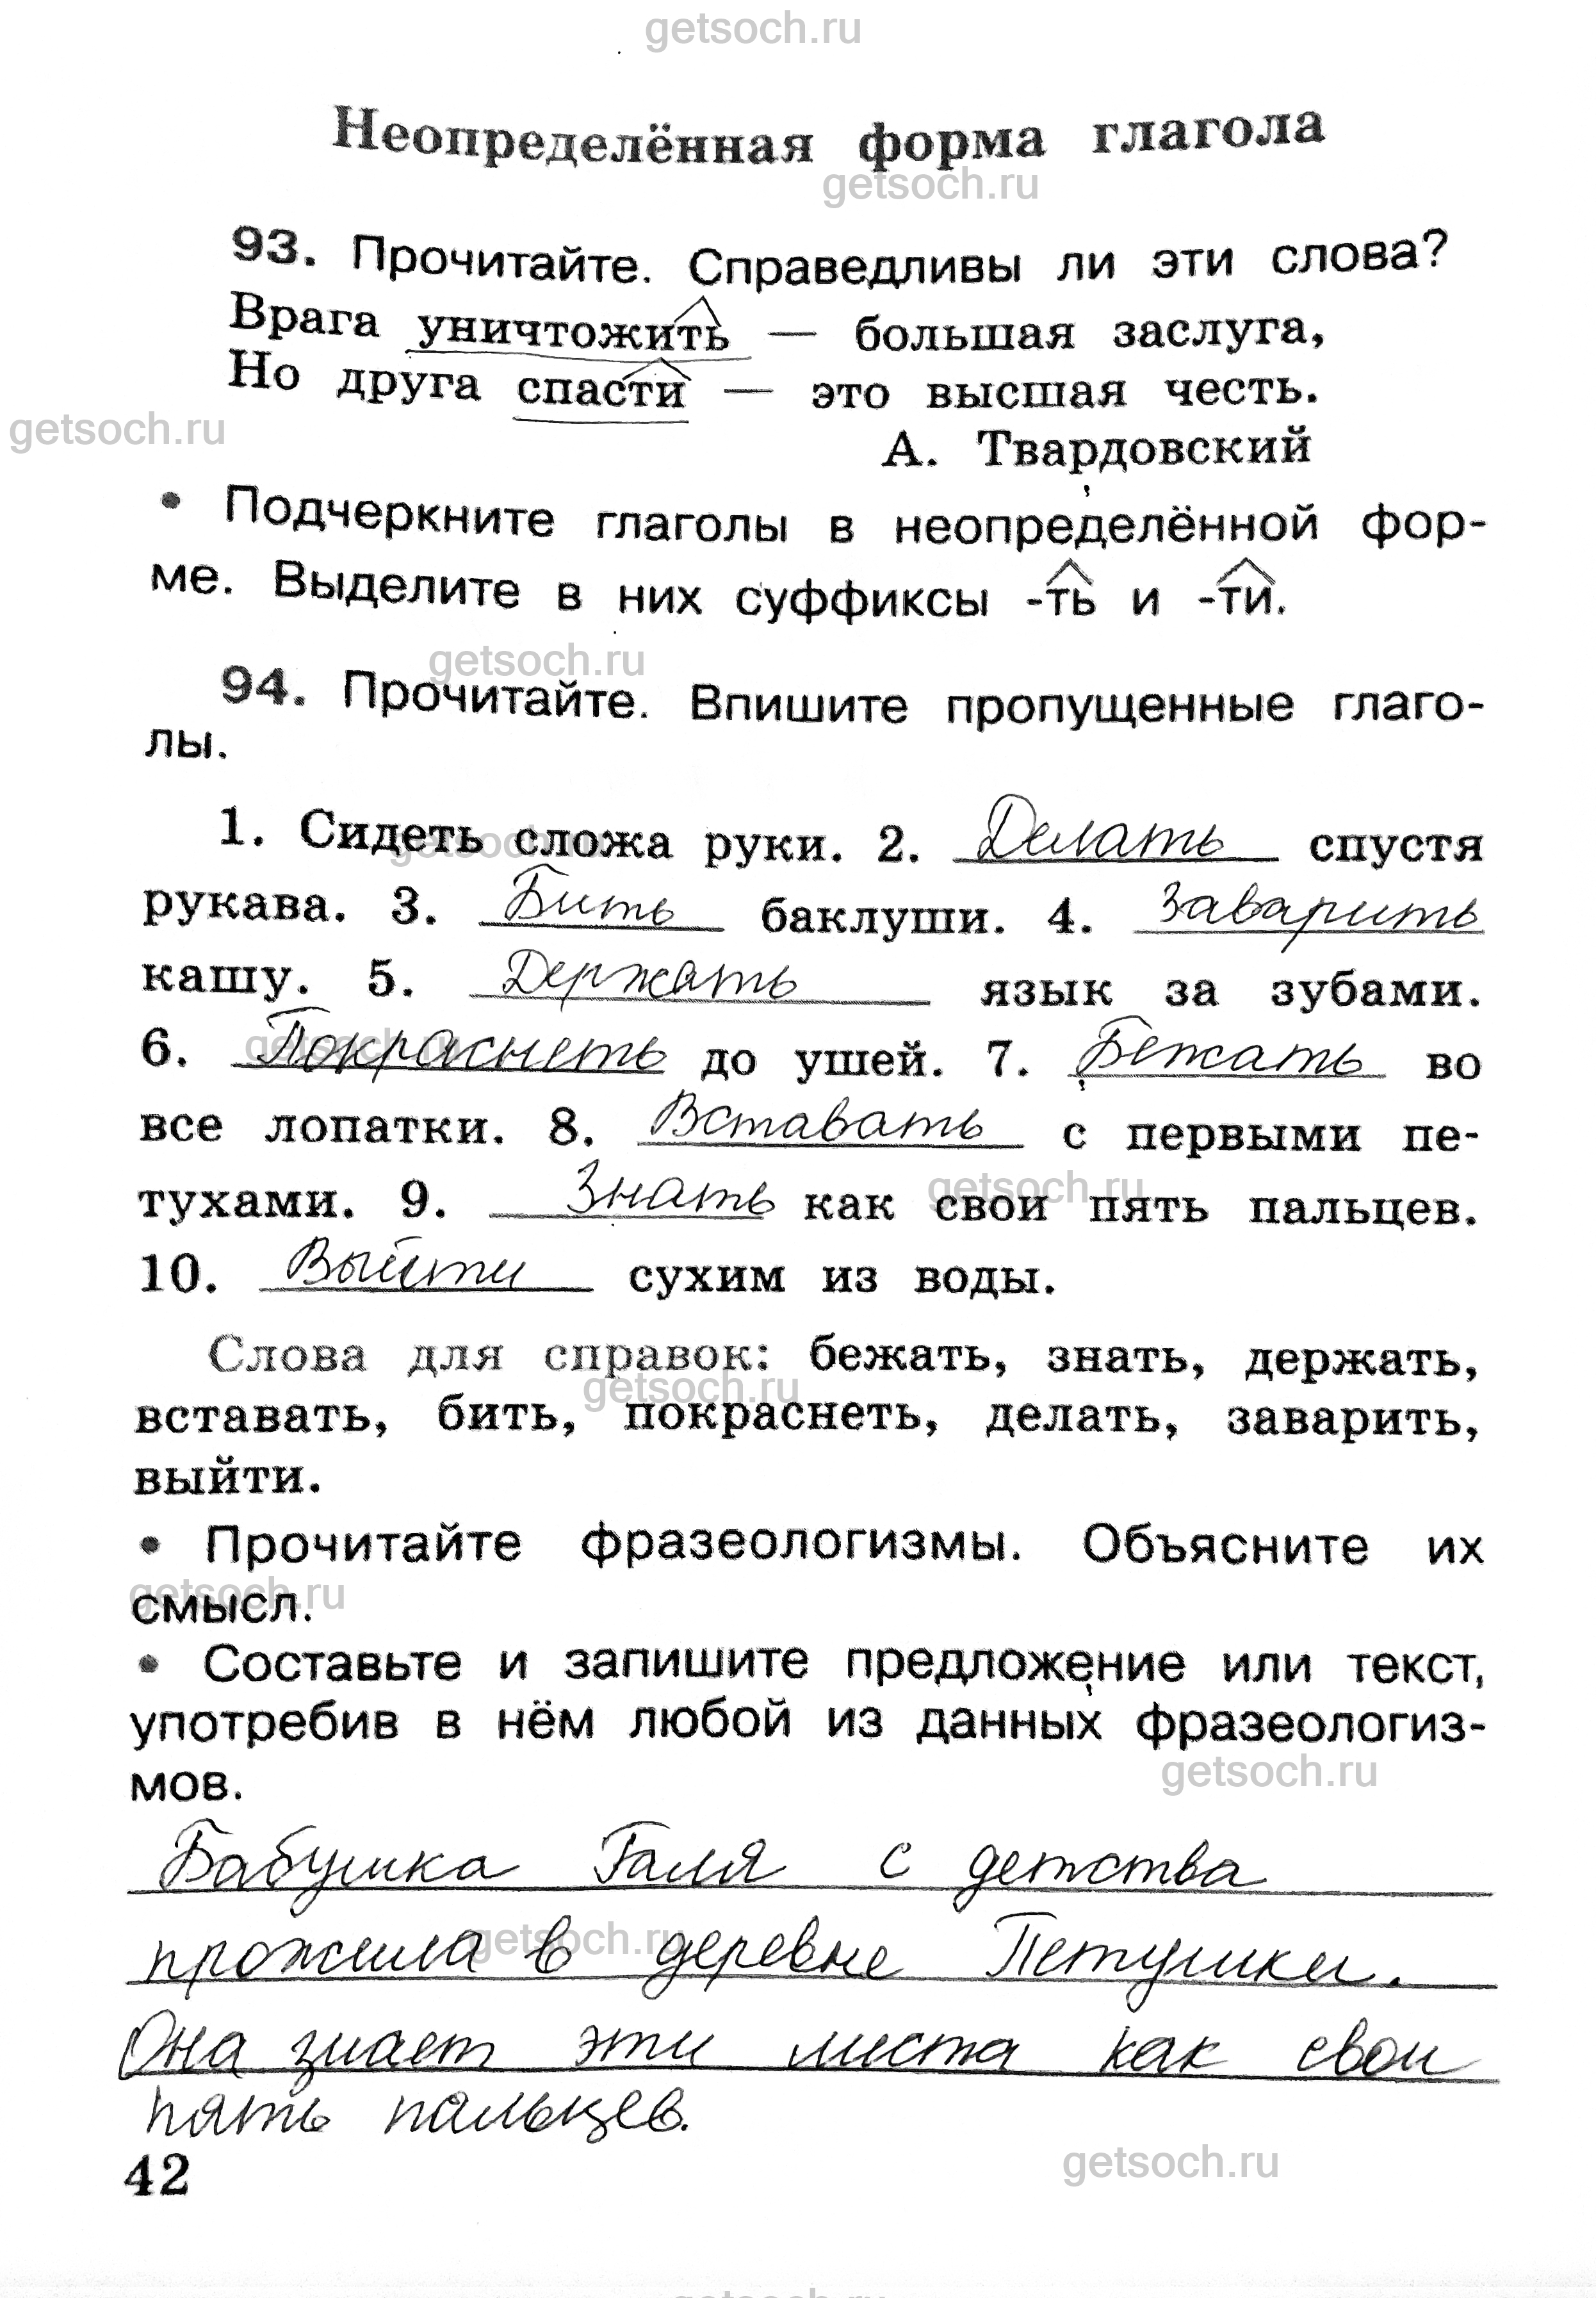 getsoch.ru
Неопределённая форма глагола
getsoch.ru
93. Прочитайте. Справедливы ли эти слова?
Врага уничтожить — большая заслуга,
Но друга спасти — это высшая честь.
getsoch.ru
А. Твардовский
• Подчеркните глаголы в неопределённой фор-
ме. Выделите в них суффиксы -ть и -ти.
getsoch.ru
94. Прочитайте. Впишите пропущенные глаго-
лы.
1. Сидеть сложа руки. 2. Делать спустя
getsoch.ru
рукава. 3. Бить баклуши. 4. Заварить
кашу. 5. Держать язык за зубами.
6. Покраснеть до ушей. 7. Бежать во
getsoch.ru
все лопатки. 8. Вставать с первыми пе-
getsoch.ru
тухами. 9. Знать как свои пять пальцев.
10. Выйти сухим из воды.
Слова для справок: бежать, знать, держать,
getsoch.ru
вставать, бить, покраснеть, делать, заварить,
выйти.
• Прочитайте фразеологизмы. Объясните их
getsoch.ru
смысл.
• Составьте и запишите предложение или текст,
употребив в нём любой из данных фразеологиз-
getsoch.ru
мов.
Бабушка Галя с детства
getsoch.ru
прожила в деревне Петушки.
Она знает эти места как свои
пять пальцев.
getsoch.ru
42
getsoch.ru